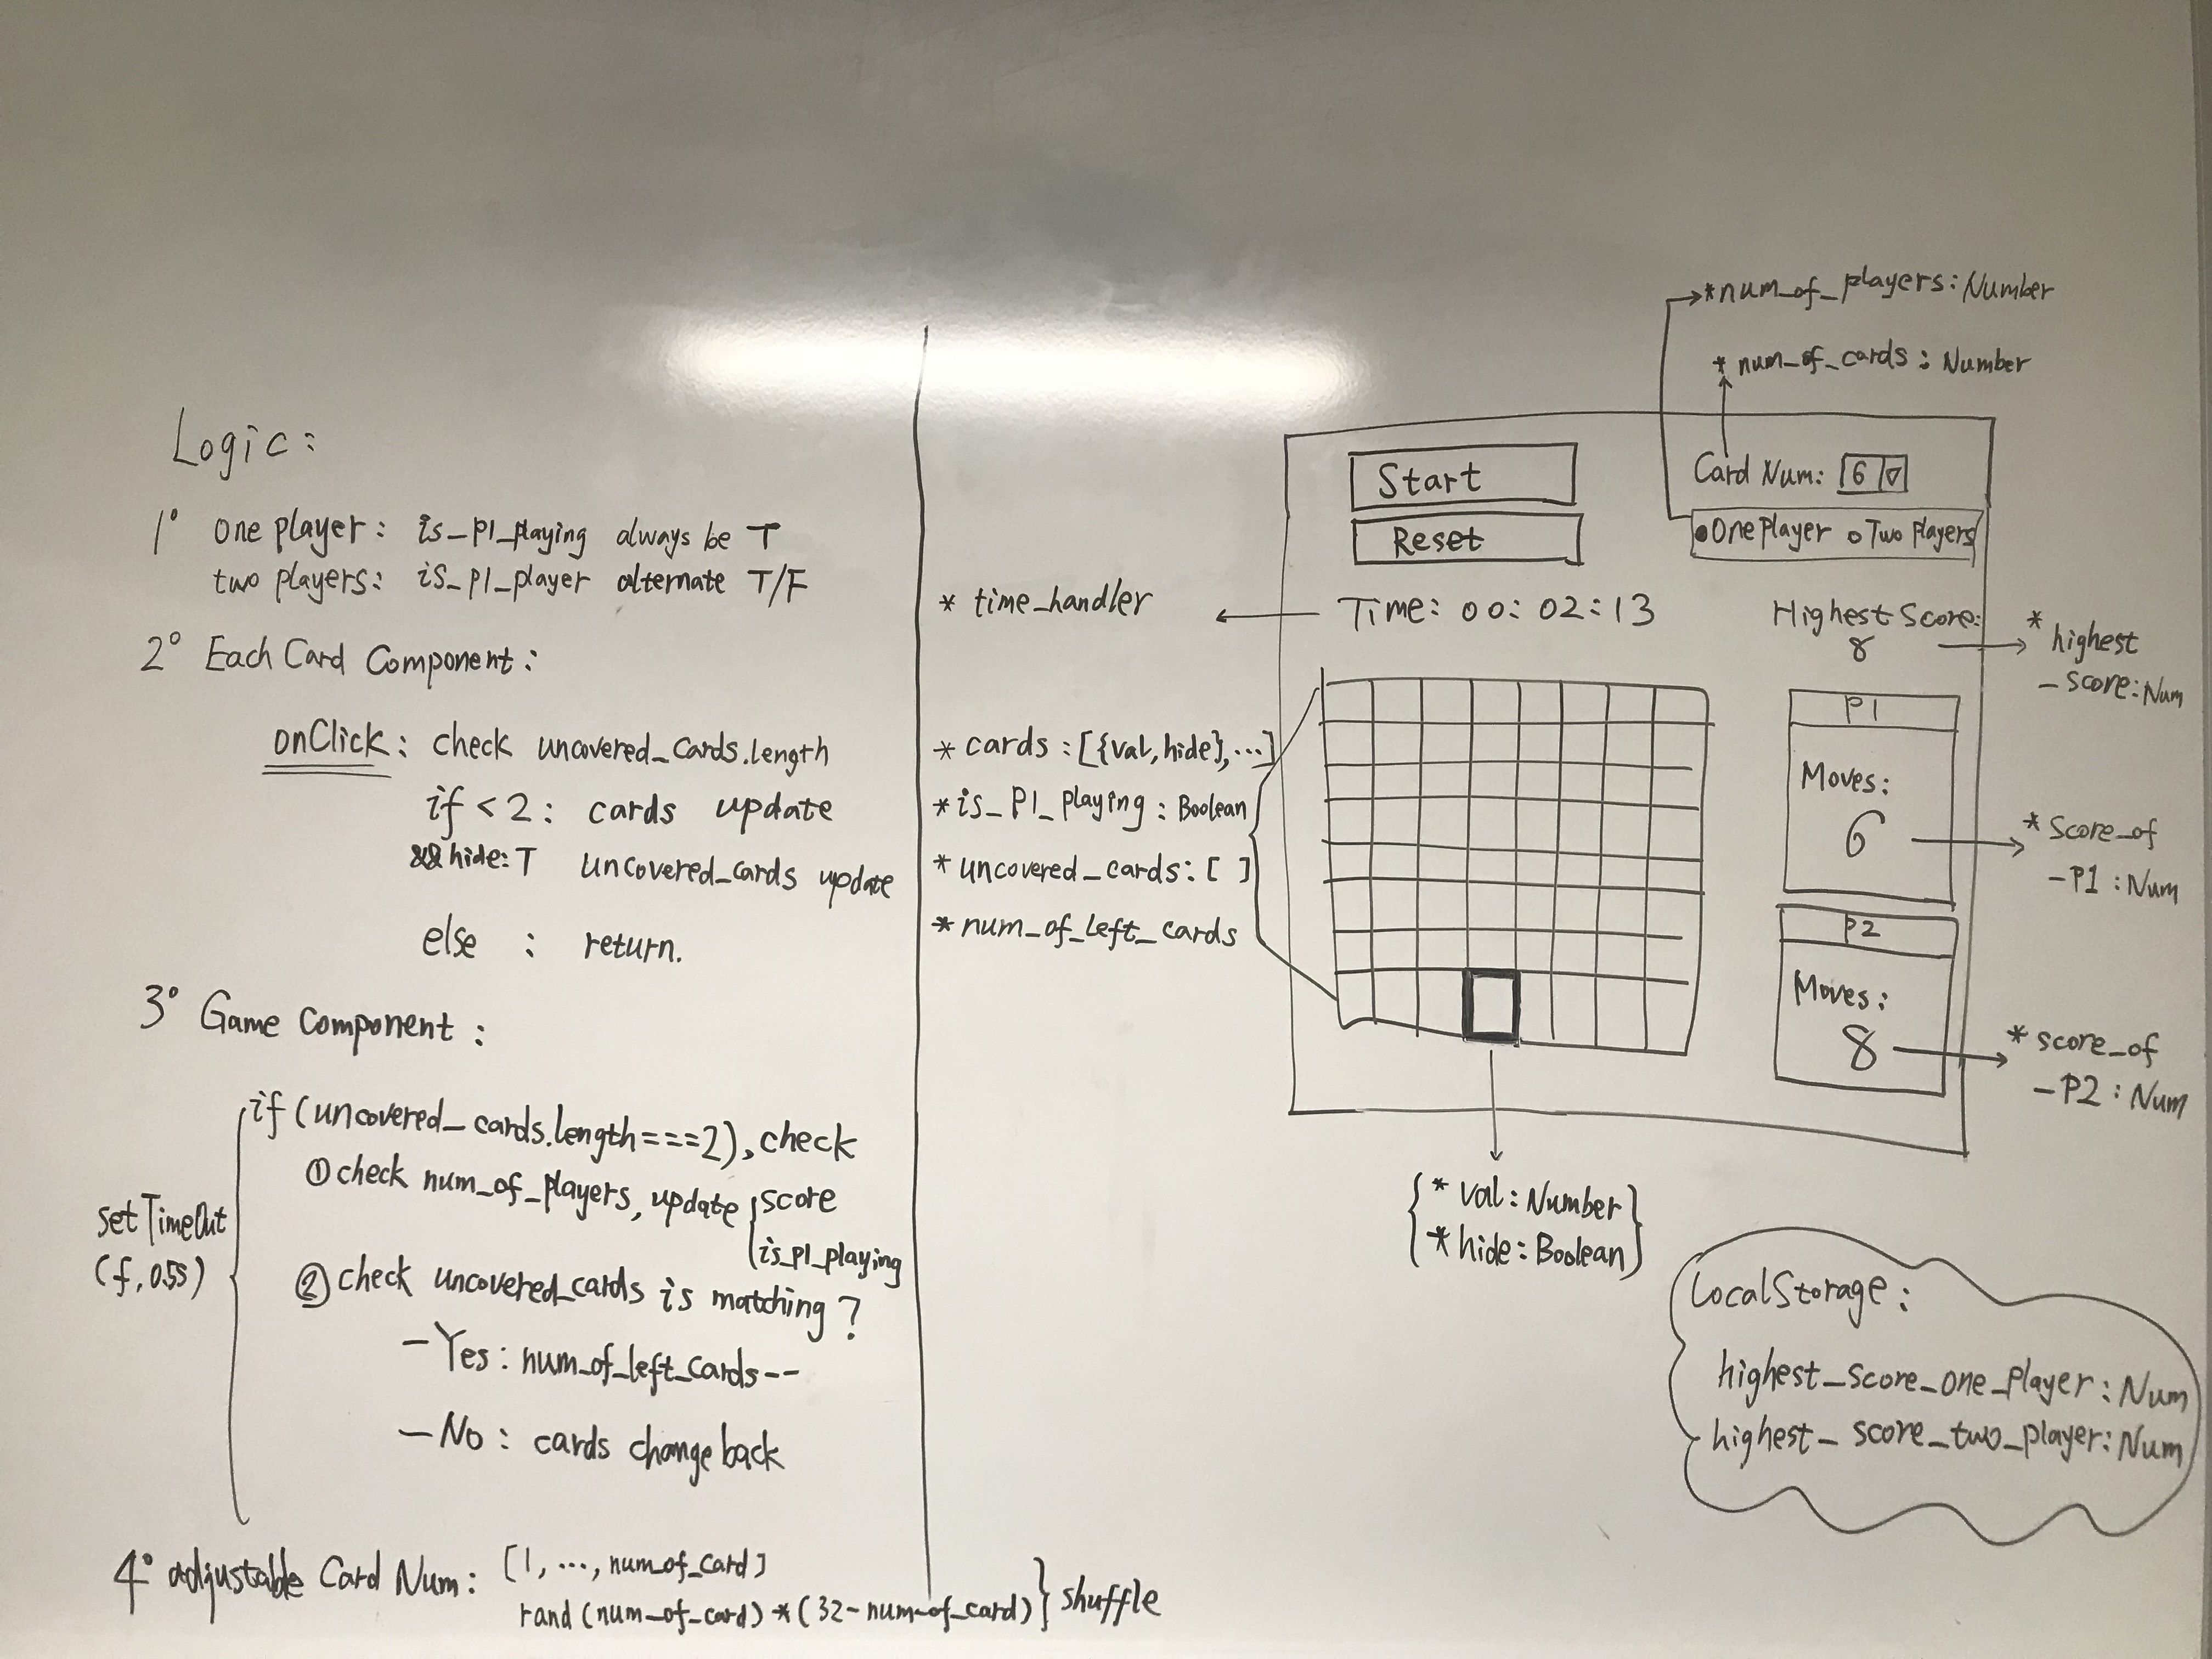 Logic:
1° One player: is_P1_playing always be T
two players: is_P1_player alternate T/F
2° Each Card Component:
onClick: check uncovered_cards.length
if < 2: cards update
&&hide:T uncovered_cards update
else : return.
3° Game Component:
setTimeOut
(f, 0.5s)
if (uncovered_cards.length===2), check
① check num_of_players, update { score
is_P1_playing
② check uncovered_cards is matching?
- Yes: num_of_left_cards--
- No: cards change back
4° adjustable Card Num: [1, ..., num_of_card]
rand(num_of_card) * (32-num_of_card) } shuffle
* time_handler
* cards: [{val, hide}, ...]
* is_P1_playing: Boolean
* uncovered_cards: [ ]
* num_of_left_cards
* num_of_players: Number
* num_of_cards: Number
Start
Reset
Card Num: 6
One Player Two Players
Time: 00: 02: 13
Highest Score:
8
* highest
_score: Num
P1
Moves:
6
* Score_of
_P1: Num
P2
Moves:
8
* score_of
_P2: Num
{ * val: Number
* hide: Boolean }
LocalStorage:
highest_score_one_player: Num
highest_score_two_player: Num